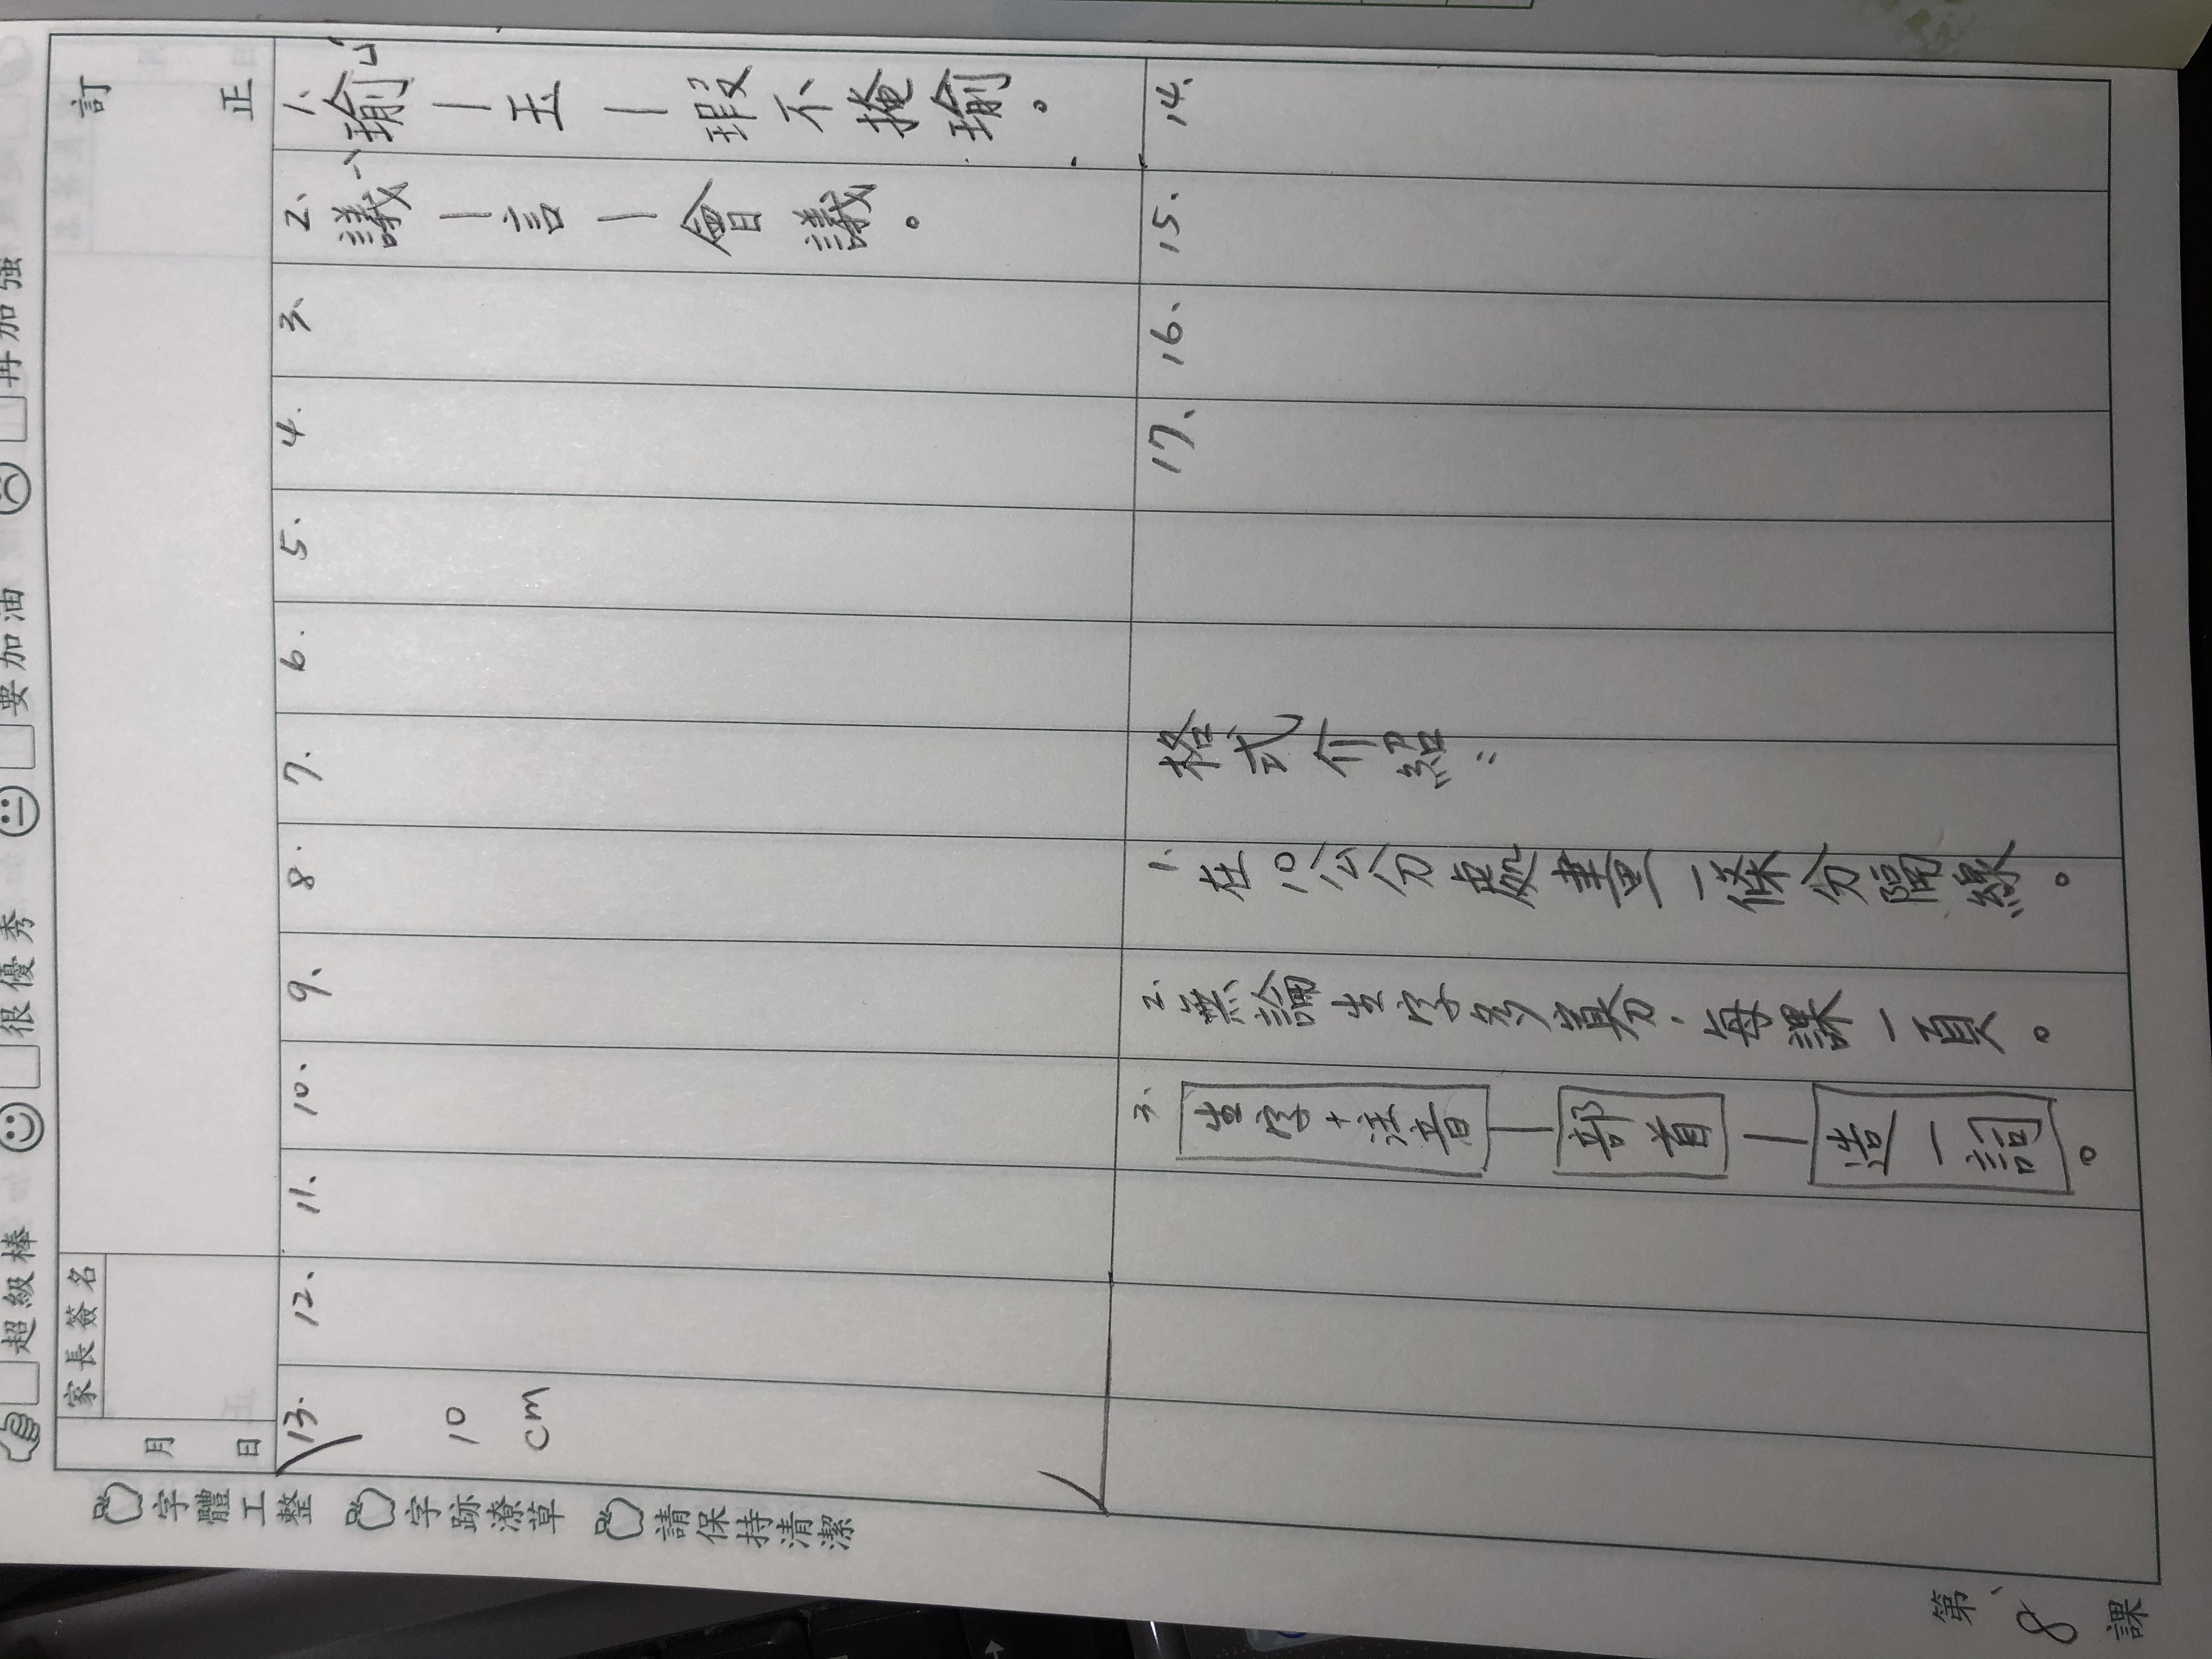 第8課
訂正
家長簽名
月日
1、瑜ㄩˊ—玉—瑕不掩瑜。
2、議ㄧˋ—言—會議。
3、
4、
5、
6、
7、
8、
9、
10、
11、
12、
13、
10 cm
14、
15、
16、
17、
格式介紹：
1、在10公分處畫一條分隔線。
2、無論生字多寡，每課一頁。
3、生字+注音—部首—造一詞。
超級棒
很優秀
要加油
再加強
字體工整
字跡潦草
請保持清潔